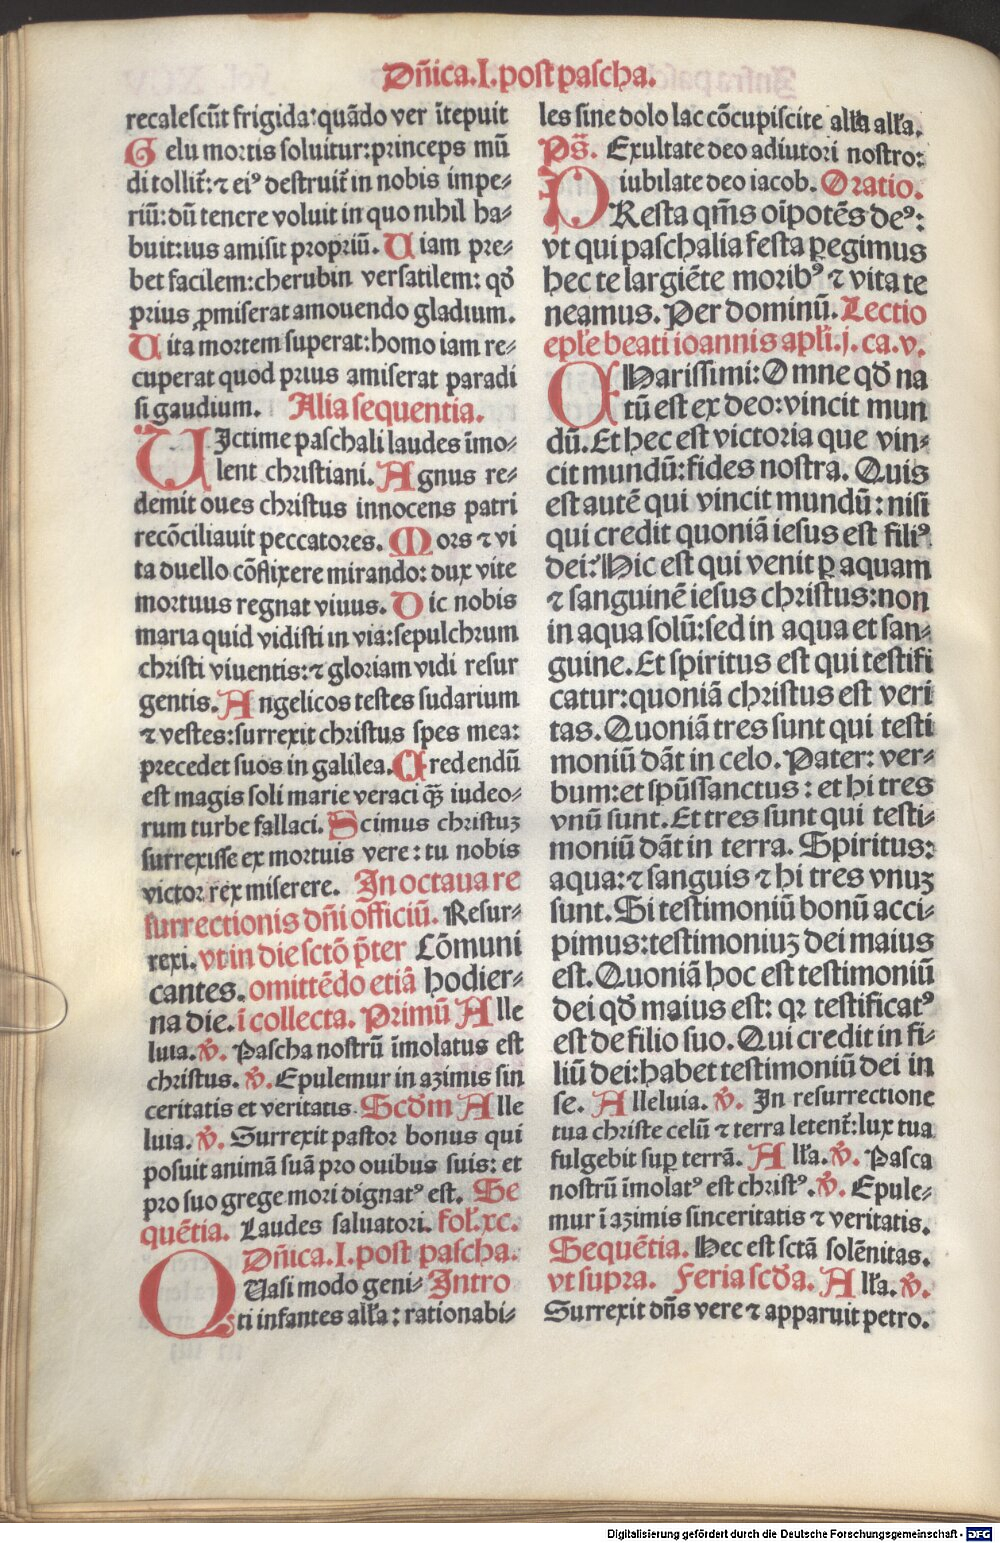 Dñica.I.post pascha.
recalescũt frigida:quãdo ver ĩtepuit
Gelu mortis soluitur:princeps mũ
di tollit᷑:⁊ eiꝰ destruit᷑ in nobis impe⸗
riũ:dũ tenere voluit in quo nihil ha⸗
buit:ius amisit propriũ. Uiam pre⸗
bet facilem:cherubin versatilem: qđ
prius ꝓmiserat amouendo gladium.
Uita mortem superat:homo iam re⸗
cuperat quod prius amiserat paradi
si gaudium. Alia sequentia.
UIctime paschali laudes ĩmo⸗
lent christiani. Agnus re⸗
demit oues christus innocens patri
recõciliauit peccatores. Mors ⁊ vi
ta duello cõflixere mirando: dux vite
mortuus regnat viuus. Dic nobis
maria quid vidisti in via:sepulchrum
christi viuentis:⁊ gloriam vidi resur
gentis. Angelicos testes sudarium
⁊ vestes:surrexit christus spes mea:
precedet suos in galilea. Credendũ
est magis soli marie veraci q̃ꝫ iudeo⸗
rum turbe fallaci. Scimus christuꝫ
surrexisse ex mortuis vere: tu nobis
victor rex miserere. In octaua re
surrectionis dñi officiũ. Resur⸗
rexi. vt in die sctõ p̃ter Cõmuni
cantes. omittẽdo etiã hodier⸗
na die. ĩ collecta. Primũ Alle
luia. ℣. Pascha nostrũ ĩmolatus est
christus. ℣. Epulemur in azimis sin
ceritatis et veritatis. Scđm Alle
luia. ℣. Surrexit pastor bonus qui
posuit animã suã pro ouibus suis: et
pro suo grege mori dignatꝰ est. Se
quẽtia. Laudes saluatori. fol.xc.
Dñica.I.post pascha.
QUasi modo geni⸗ Intro
ti infantes alľa: rationabi⸗
les sine dolo lac cõcupiscite alľa alľa.
Ps̃. Exultate deo adiutori nostro:
iubilate deo iacob. Oratio.
PResta qm̃s oĩpotẽs deꝰ:
vt qui paschalia festa ꝑegimus
hec te largiẽte moribꝰ ⁊ vita te
neamus. Per dominũ. Lectio
epľe beati ioannis apľi.j.ca.v.
CHarissimi: Omne qđ na
tũ est ex deo:vincit mun
dũ. Et hec est victoria que vin⸗
cit mundũ:fides nostra. Quis
est autẽ qui vincit mundũ: nisi
qui credit quoniã iesus est filiꝰ
dei? Hic est qui venit ꝑ aquam
⁊ sanguinẽ iesus christus:non
in aqua solũ:sed in aqua et san⸗
guine. Et spiritus est qui testifi
catur:quoniã christus est veri
tas. Quoniã tres sunt qui testi
moniũ dãt in celo. Pater: ver⸗
bum:et spũssanctus: et hi tres
vnũ sunt. Et tres sunt qui testi⸗
moniũ dãt in terra. Spiritus:
aqua:⁊ sanguis ⁊ hi tres vnuꝫ
sunt. Si testimoniũ bonũ acci⸗
pimus:testimoniuꝫ dei maius
est. Quoniã hoc est testimoniũ
dei qđ maius est: qꝛ testificatꝰ
est de filio suo. Qui credit in fi⸗
liũ dei:habet testimoniũ dei in
se. Alleluia. ℣. In resurrectione
tua christe celũ ⁊ terra letent᷑:lux tua
fulgebit suꝑ terrã. Alľa. ℣. Pasca
nostrũ ĩmolatꝰ est christꝰ. ℣. Epule⸗
mur ĩ azimis sinceritatis ⁊ veritatis.
Sequẽtia. Hec est sctã solẽnitas.
vt supra. Feria scđa. Alľa. ℣.
Surrexit dñs vere ⁊ apparuit petro.
Digitalisierung gefördert durch die Deutsche Forschungsgemeinschaft - DFG